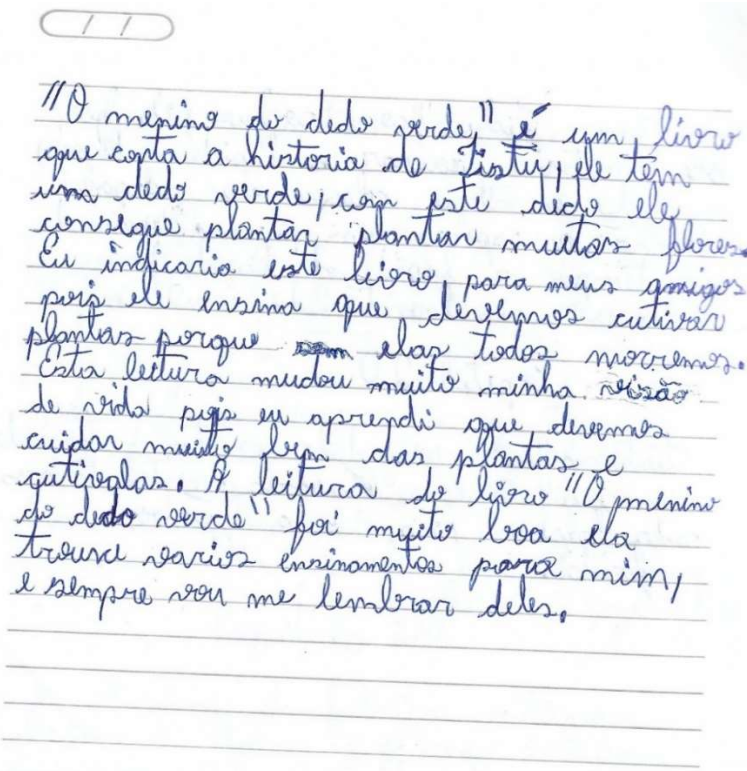 "O menino do dedo verde" é um livro
que conta a historia de Tistu, ele tem
um dedo verde, com este dedo ele
consegue plantar plantar muitas flores.
Eu indicaria este livro para meus amigos
pois ele ensina que devemos cutivar
plantas porque sem elas todos morremos.
Esta leitura mudou muito minha visão
de vida pois eu aprendi que devemos
cuidar muito bem das plantas e
cutivalas. A leitura do livro "O menino
do dedo verde" foi muito boa ela
trouxe varios ensinamentos para mim,
e sempre vou me lembrar deles.